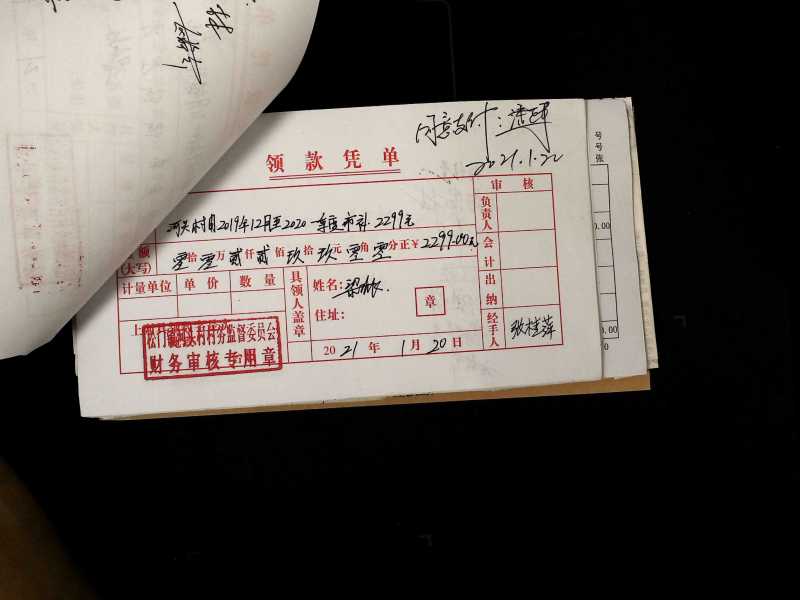 同意支付:
2021.1.22
领款凭单
审核
河头村自2019年12月至2020一年度市补2299元
额(大写) 零拾零万贰仟贰佰玖拾玖元零角零分正¥2299.00元
计量单位 单价 数量
具领人盖章
姓名:
住址:
章
2021年1月20日
负责人
会计
出纳
经手人 张桂萍
上
松门镇河头村村务监督委员会
财务审核专用章
号
号
张
0.00
0.00
0